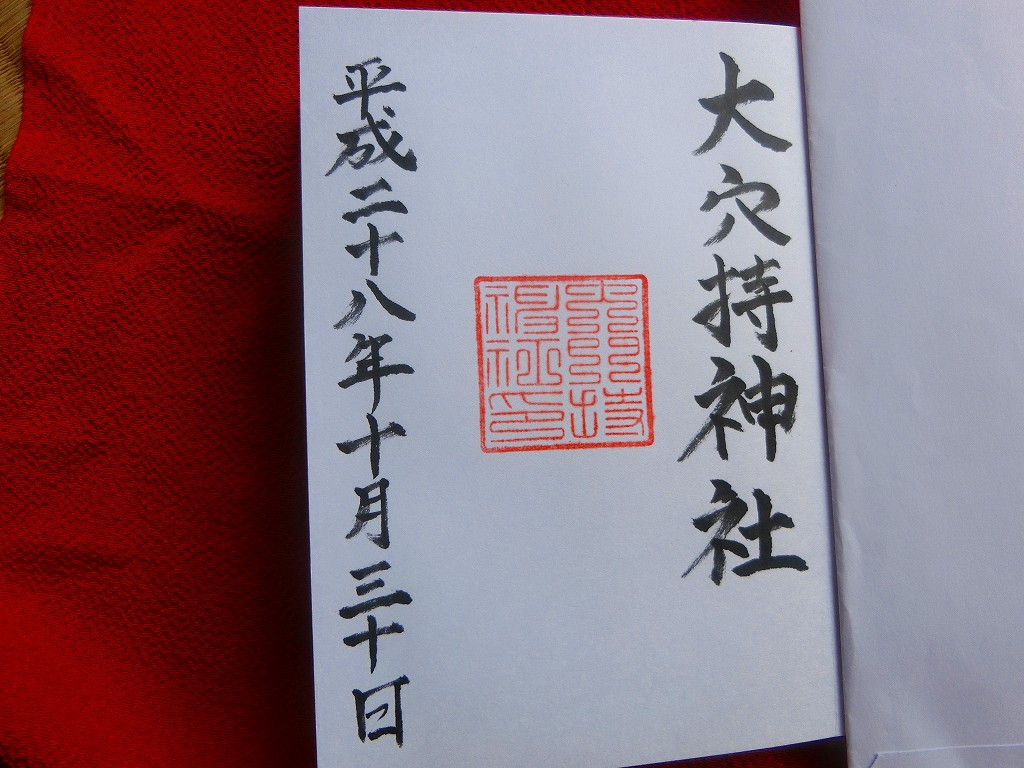 大穴持神社
平成二十八年十月三十日